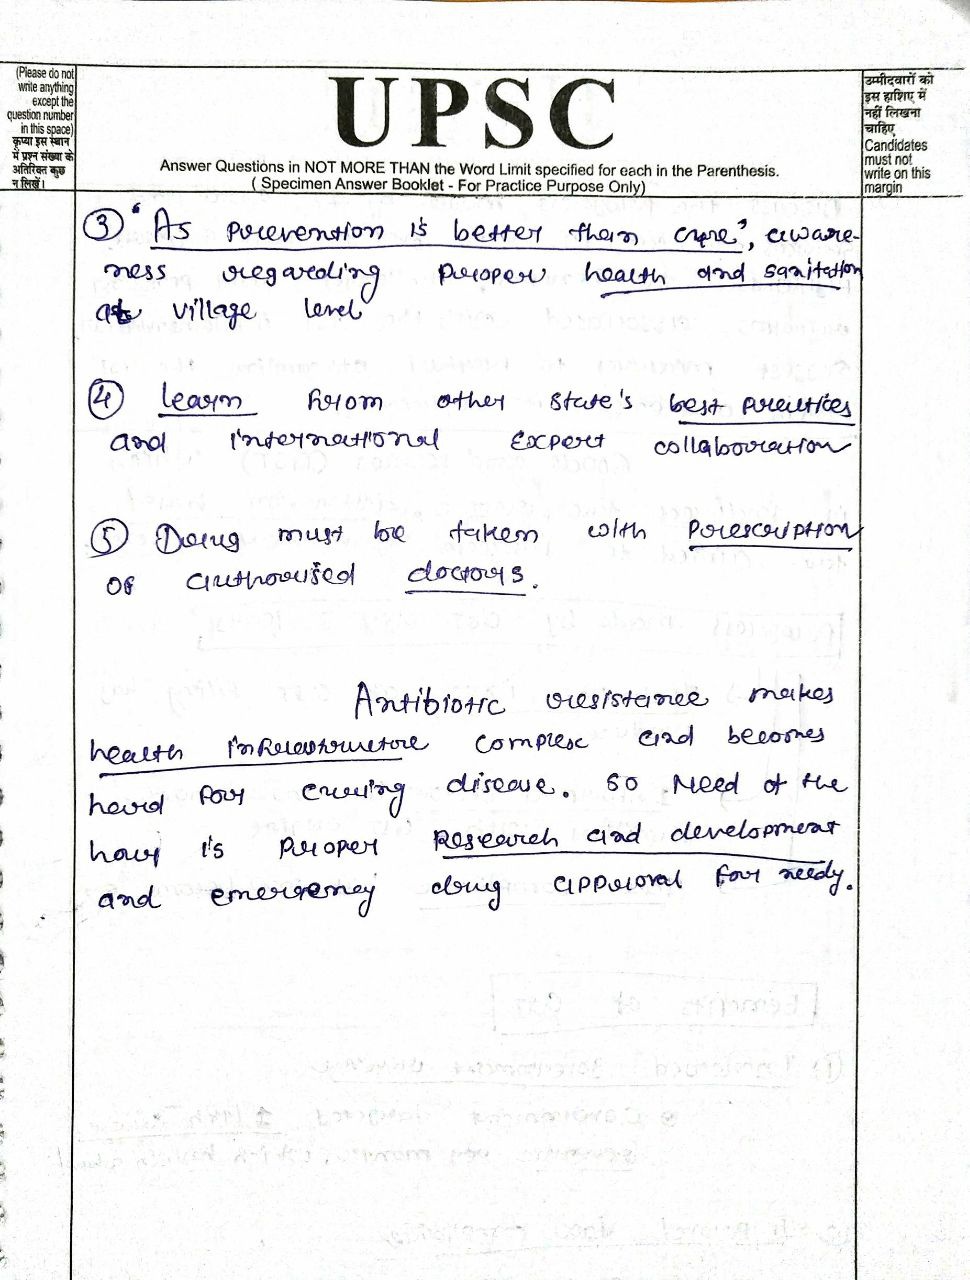 (Please do not
write anything
except the
question number
in this space)
कृप्या इस स्थान
में प्रश्न संख्या के
अतिरिक्त कुछ
न लिखें।
UPSC
Answer Questions in NOT MORE THAN the Word Limit specified for each in the Parenthesis.
( Specimen Answer Booklet - For Practice Purpose Only)
उम्मीदवारों को
इस हाशिए में
नहीं लिखना
चाहिए
Candidates
must not
write on this
margin
③ "As prevention is better than cure", aware-
ness regarding proper health and sanitation
at village level
④ Learn from other state's best practices
and international expert collaboration
⑤ Drug must be taken with prescription
of authorised doctors.
Antibiotic resistance makes
health infrastructure complex and becomes
hard for curing disease. so Need of the
hour is proper Research and development
and emergency drug approval for needy.